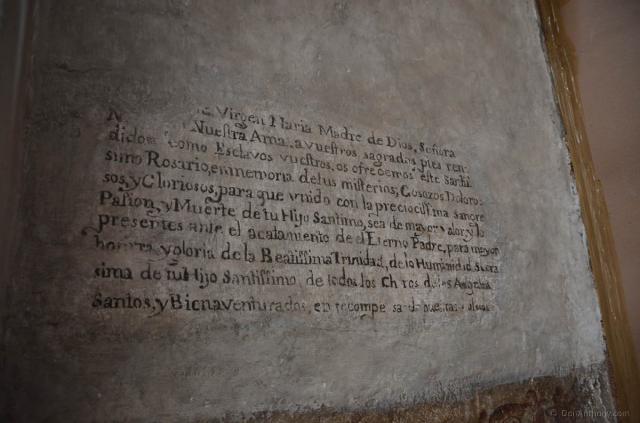 Virgen Maria Madre de Dios, Señora
Nuestra Ama, a vuestros sagrados pies ren-
didos como Esclavos vuestros, os ofrecemos este Santi
simo Rosario, en memoria de tus misterios, Gosozos Doloro:
sos, y Gloriosos, para que vnido con la preciocissima sangre
Pasion, y Muerte de tu Hijo Santimo, sea de mayor valor, y lo
presentes ante el acatamiento de el Eterno Padre, para mayor
honrra y gloria de la Beatissima Trinidad, de la Humanidad
sima de tu Hijo Santissimo, de todos los de los Angeles
Santos, y Bienaventurados, en
© Don Anthony.com